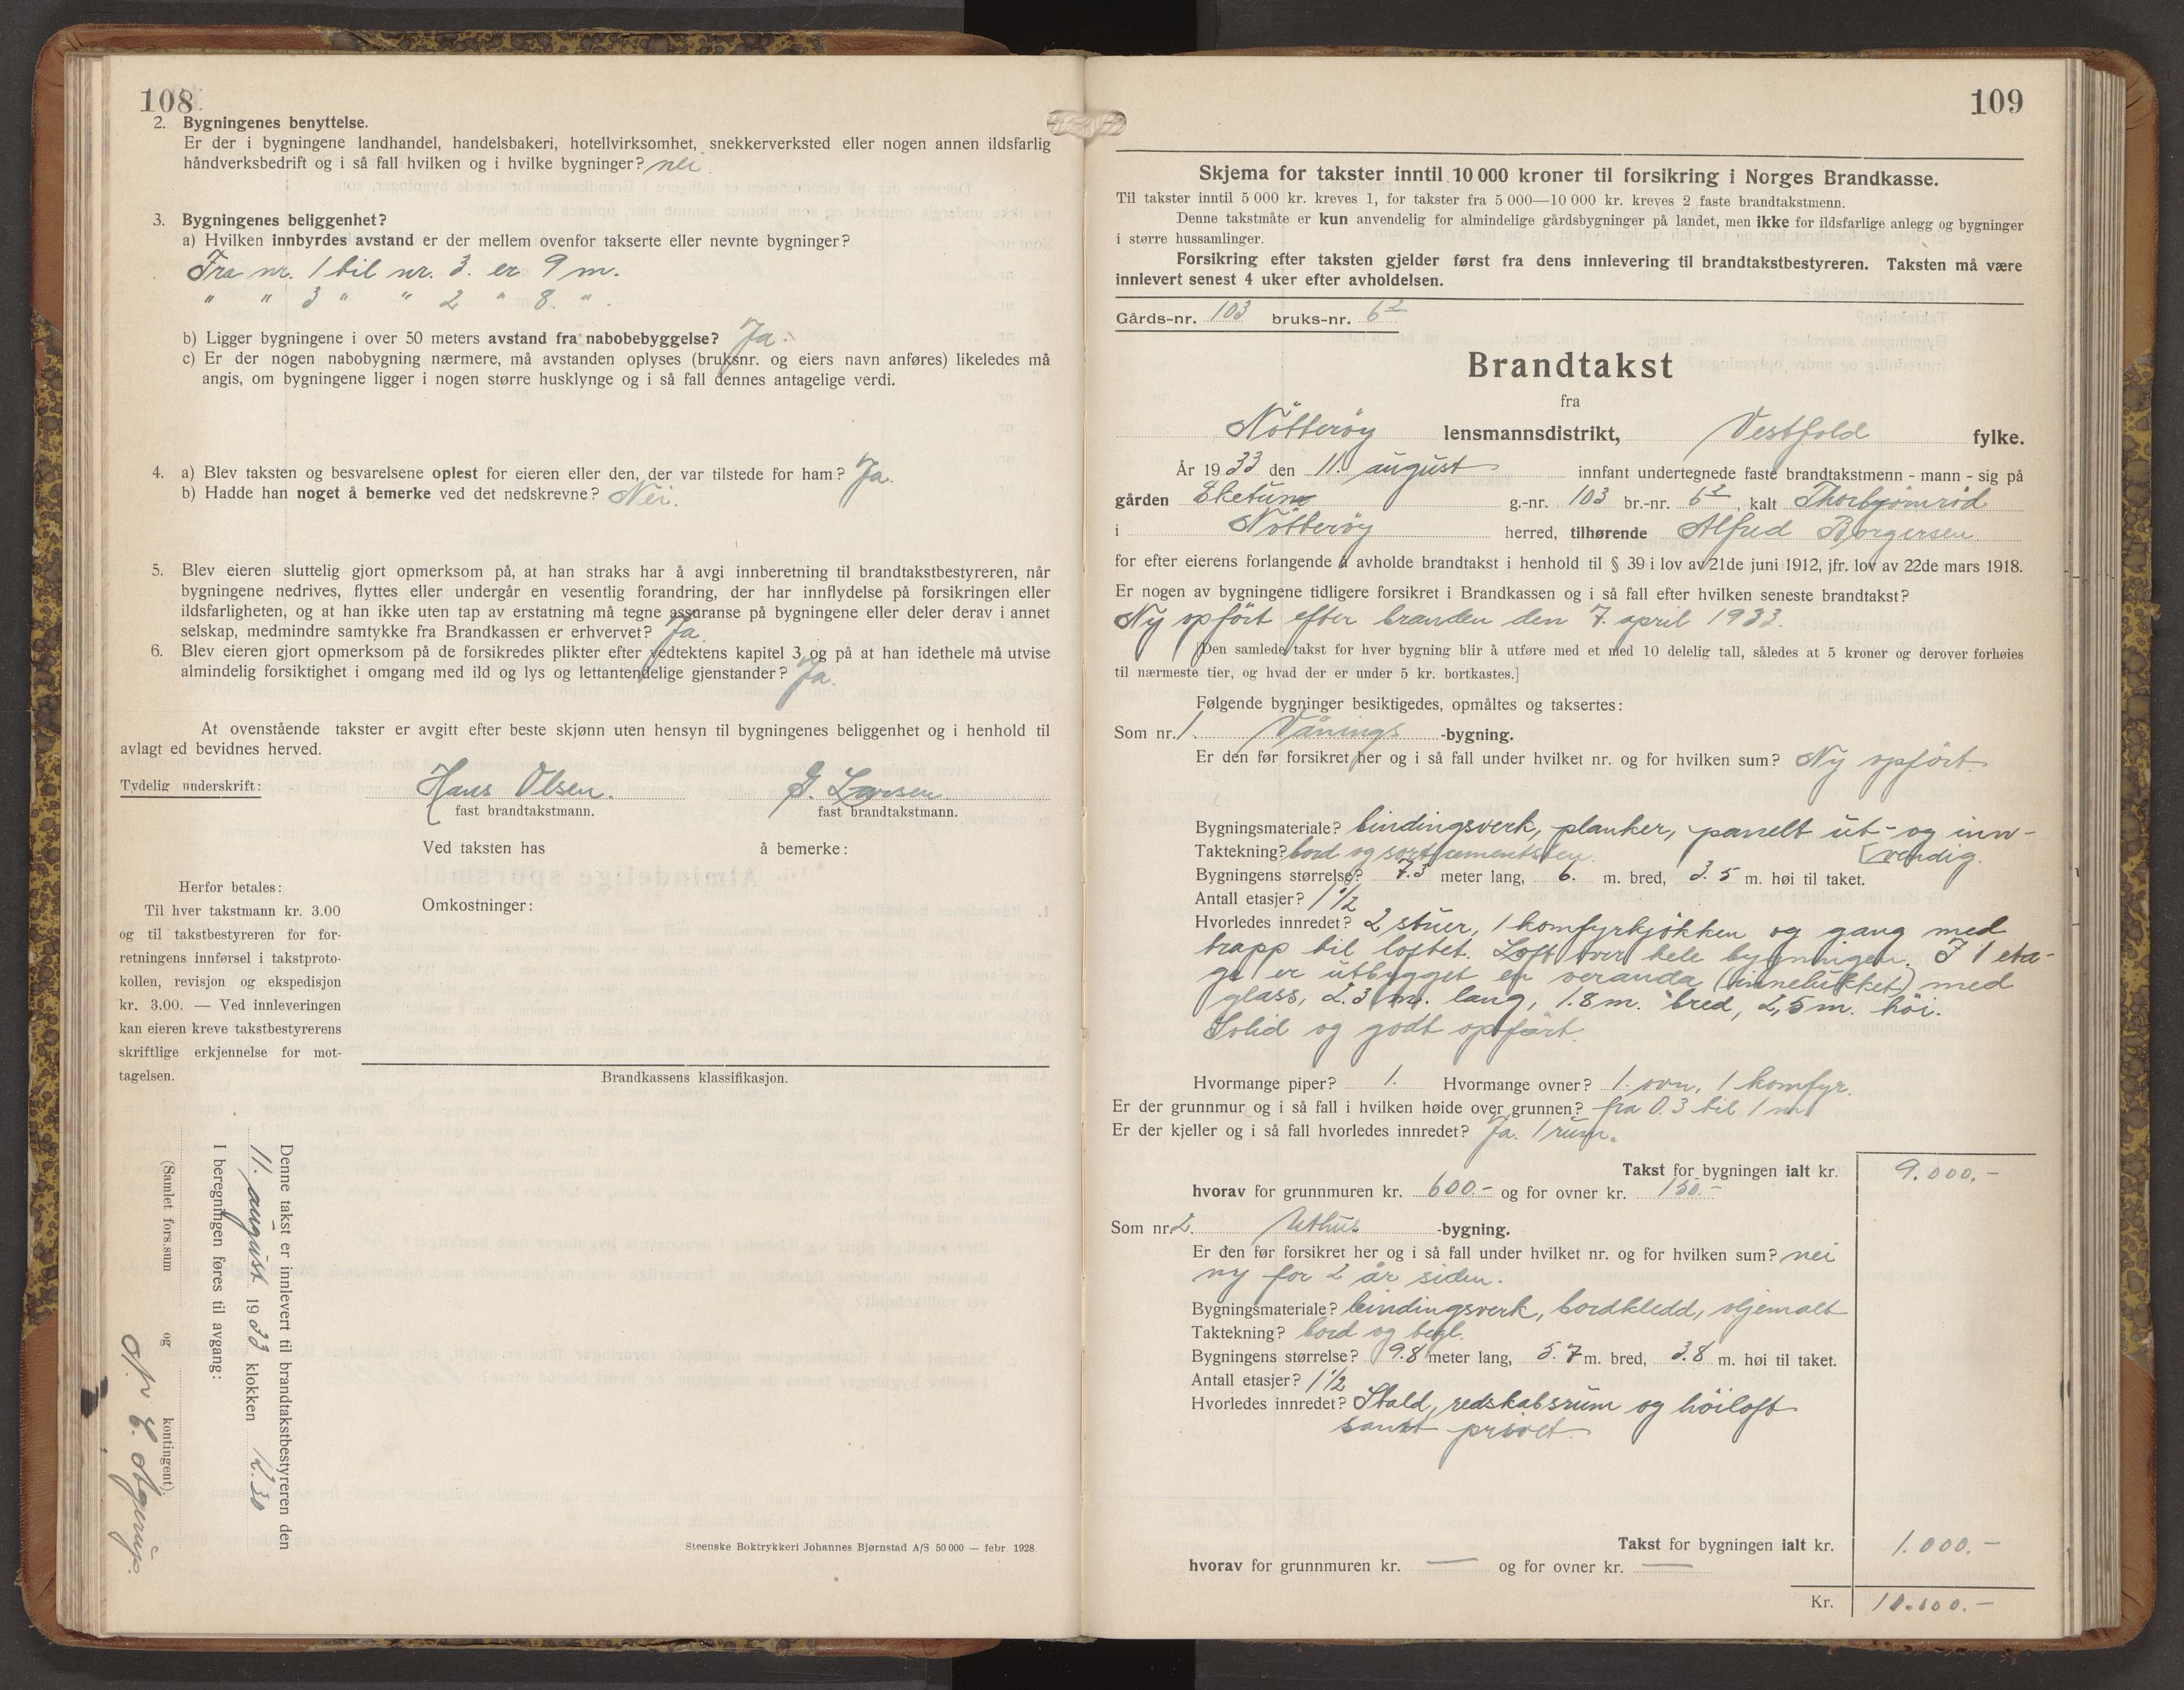 108
2. Bygningenes benyttelse.
Er der i bygningene landhandel, handelsbakeri, hotellvirksomhet, snekkerverksted eller nogen annen ildsfarlig
håndverksbedrift og i så fall hvilken og i hvilke bygninger? nei.
3. Bygningenes beliggenhet?
a) Hvilken innbyrdes avstand er der mellem ovenfor takserte eller nevnte bygninger?
Fra nr. 1 til nr. 3. er 9 m.
" " 3 " " 2 " 8. ".
b) Ligger bygningene i over 50 meters avstand fra nabobebyggelse? Ja.
c) Er der nogen nabobygning nærmere, må avstanden oplyses (bruksnr. og eiers navn anføres) likeledes må
angis, om bygningene ligger i nogen større husklynge og i så fall dennes antagelige verdi.
4. a) Blev taksten og besvarelsene oplest for eieren eller den, der var tilstede for ham? Ja.
b) Hadde han noget å bemerke ved det nedskrevne? Nei.
5. Blev eieren sluttelig gjort opmerksom på, at han straks har å avgi innberetning til brandtakstbestyreren, når
bygningene nedrives, flyttes eller undergår en vesentlig forandring, der har innflydelse på forsikringen eller
ildsfarligheten, og at han ikke uten tap av erstatning må tegne assuranse på bygningene eller deler derav i annet
selskap, medmindre samtykke fra Brandkassen er erhvervet? Ja.
6. Blev eieren gjort opmerksom på de forsikredes plikter efter vedtektens kapitel 3 og på at han idethele må utvise
almindelig forsiktighet i omgang med ild og lys og lettantendelige gjenstander? Ja.
At ovenstående takster er avgitt efter beste skjønn uten hensyn til bygningenes beliggenhet og i henhold til
avlagt ed bevidnes herved.
Tydelig underskrift: Hans Olsen. G. Larsen.
fast brandtakstmann. fast brandtakstmann.
Ved taksten has å bemerke:
Herfor betales:
Til hver takstmann kr. 3.00
og til takstbestyreren for for-
retningens innførsel i takstproto-
kollen, revisjon og ekspedisjon
kr. 3.00. — Ved innleveringen
kan eieren kreve takstbestyrerens
skriftlige erkjennelse for mot-
tagelsen.
Omkostninger:
Brandkassens klassifikasjon.
Denne takst er innlevert til brandtakstbestyreren den
11. august 1933 klokken 12.30
I beregningen føres til avgang:
(Samlet fors.sum og kontingent).
Agerup.
Steenske Boktrykkeri Johannes Bjørnstad A/S 50 000 — febr. 1928.
109
Skjema for takster inntil 10 000 kroner til forsikring i Norges Brandkasse.
Til takster inntil 5 000 kr. kreves 1, for takster fra 5 000—10 000 kr. kreves 2 faste brandtakstmenn.
Denne takstmåte er kun anvendelig for almindelige gårdsbygninger på landet, men ikke for ildsfarlige anlegg og bygninger
i større hussamlinger.
Forsikring efter taksten gjelder først fra dens innlevering til brandtakstbestyreren. Taksten må være
innlevert senest 4 uker efter avholdelsen.
Gårds-nr. 103 bruks-nr. 6²
Brandtakst
fra
Nötteröy lensmannsdistrikt, Vestfold fylke.
År 1933 den 11. august innfant undertegnede faste brandtakstmenn - mann - sig på
gården Eketun g.-nr. 103 br.-nr. 6², kalt Thorbjörnröd
i Nötteröy herred, tilhørende Alfred Borgersen
for efter eierens forlangende å avholde brandtakst i henhold til § 39 i lov av 21de juni 1912, jfr. lov av 22de mars 1918.
Er nogen av bygningene tidligere forsikret i Brandkassen og i så fall efter hvilken seneste brandtakst?
Ny opfört efter branden den 7. april 1933.
[Den samlede takst for hver bygning blir å utføre med et med 10 delelig tall, således at 5 kroner og derover forhøies
til nærmeste tier, og hvad der er under 5 kr. bortkastes.]
Følgende bygninger besiktigedes, opmåltes og taksertes:
Som nr. 1. Vånings -bygning.
Er den før forsikret her og i så fall under hvilket nr. og for hvilken sum? Ny opfört.
Bygningsmateriale? bindingsverk, planker, panelt ut- og inn-
Taktekning? bord og sort cementsten. [vendig.
Bygningens størrelse? 7.3 meter lang, 6. m. bred, 3.5 m. høi til taket.
Antall etasjer? 1 1/2
Hvorledes innredet? 2 stuer, 1 komfyrkjökken og gang med
trapp til loftet. Loft over hele bygningen. I 1 eta-
ge er utbygget en veranda (innelukket) med
glass, 2.3 m. lang, 1.8 m. bred, 2,5 m. höi.
Solid og godt opfört.
Hvormange piper? 1. Hvormange ovner? 1. ovn, 1 komfyr.
Er der grunnmur og i så fall i hvilken høide over grunnen? fra 0.3 til 1 m
Er der kjeller og i så fall hvorledes innredet? Ja. 1 rum.
Takst for bygningen ialt kr. 9.000.-
hvorav for grunnmuren kr. 600.- og for ovner kr. 150.-
Som nr. 2. Uthus -bygning.
Er den før forsikret her og i så fall under hvilket nr. og for hvilken sum? nei
ny for 2 år siden.
Bygningsmateriale? bindingsverk, bordkledd, oljemalt
Taktekning? bord og begl.
Bygningens størrelse? 9.8 meter lang, 5.7 m. bred, 3.8 m. høi til taket.
Antall etasjer? 1 1/2
Hvorledes innredet? Stald, redskabsrum og höiloft
samt privet.
Takst for bygningen ialt kr. 1.000.-
hvorav for grunnmuren kr. — og for ovner kr. —
Kr. 10.000.-